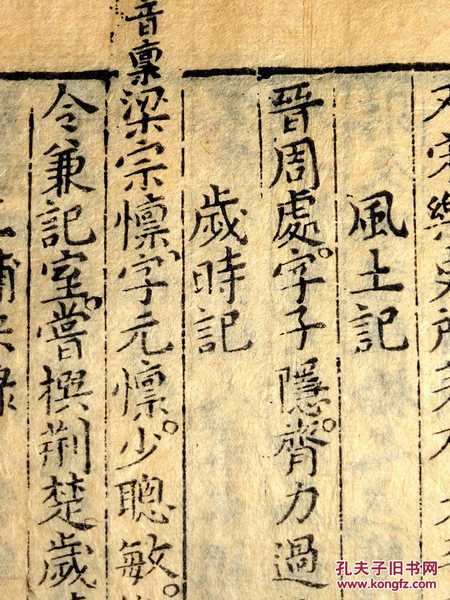 風土記
晉周處。字子隱。膂力過
歲時記
音禀
梁宗懔、字元懔。少聰敏。
令兼記室。嘗撰荊楚歲
孔夫子旧书网
www.kongfz.com